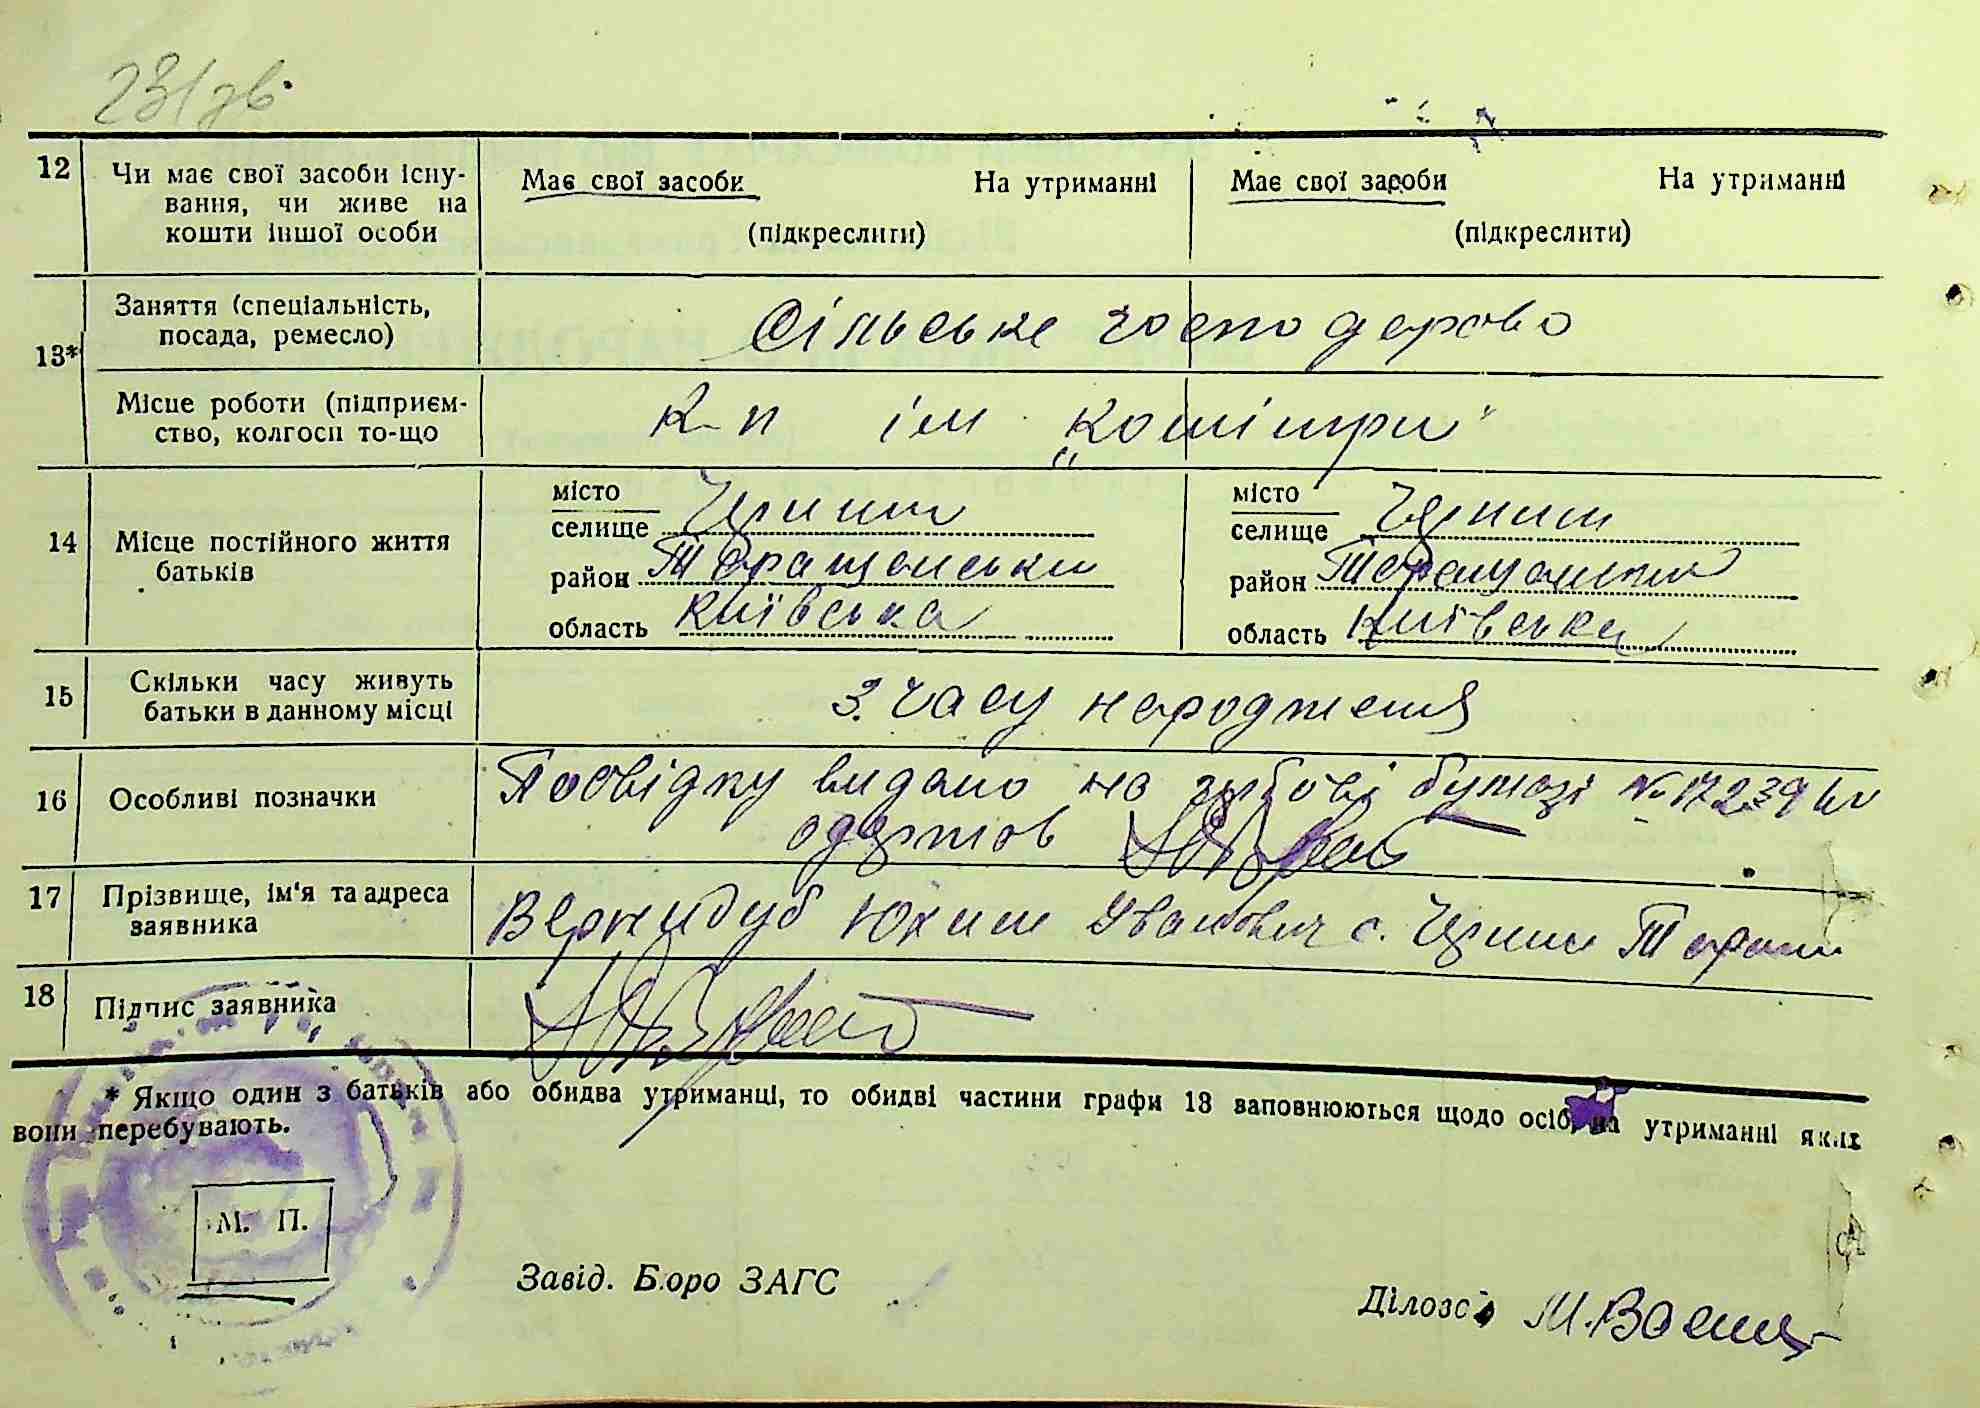 231 зв.
12 Чи має свої засоби існу-
вання, чи живе на
кошти іншої особи
Має свої засоби На утриманні
(підкреслити)
Має свої засоби На утриманні
(підкреслити)
13* Заняття (спеціальність,
посада, ремесло)
Сільське господарсво
Місце роботи (підприєм-
ство, колгосп то-що
К-п ім
14 Місце постійного життя
батьків
місто
селище Чернин
район Таращанськи
область Київська
місто
селище Чернин
район Таращанський
область Київська
15 Скільки часу живуть
батьки в данному місці
З часу народження
16 Особливі позначки
Посвідку видано на бумазі № 17239
одержав
17 Прізвище, ім'я та адреса
заявника
Вернидуб Юхим Иванович с. Чернин Тараш
18 Підпис заявника
* Якщо один з батьків або обидва утриманці, то обидві частини графи 13 заповнюються щодо осіб, на утриманні яких
вони перебувають.
М. П.
Завід. Бюро ЗАГС
Діловод